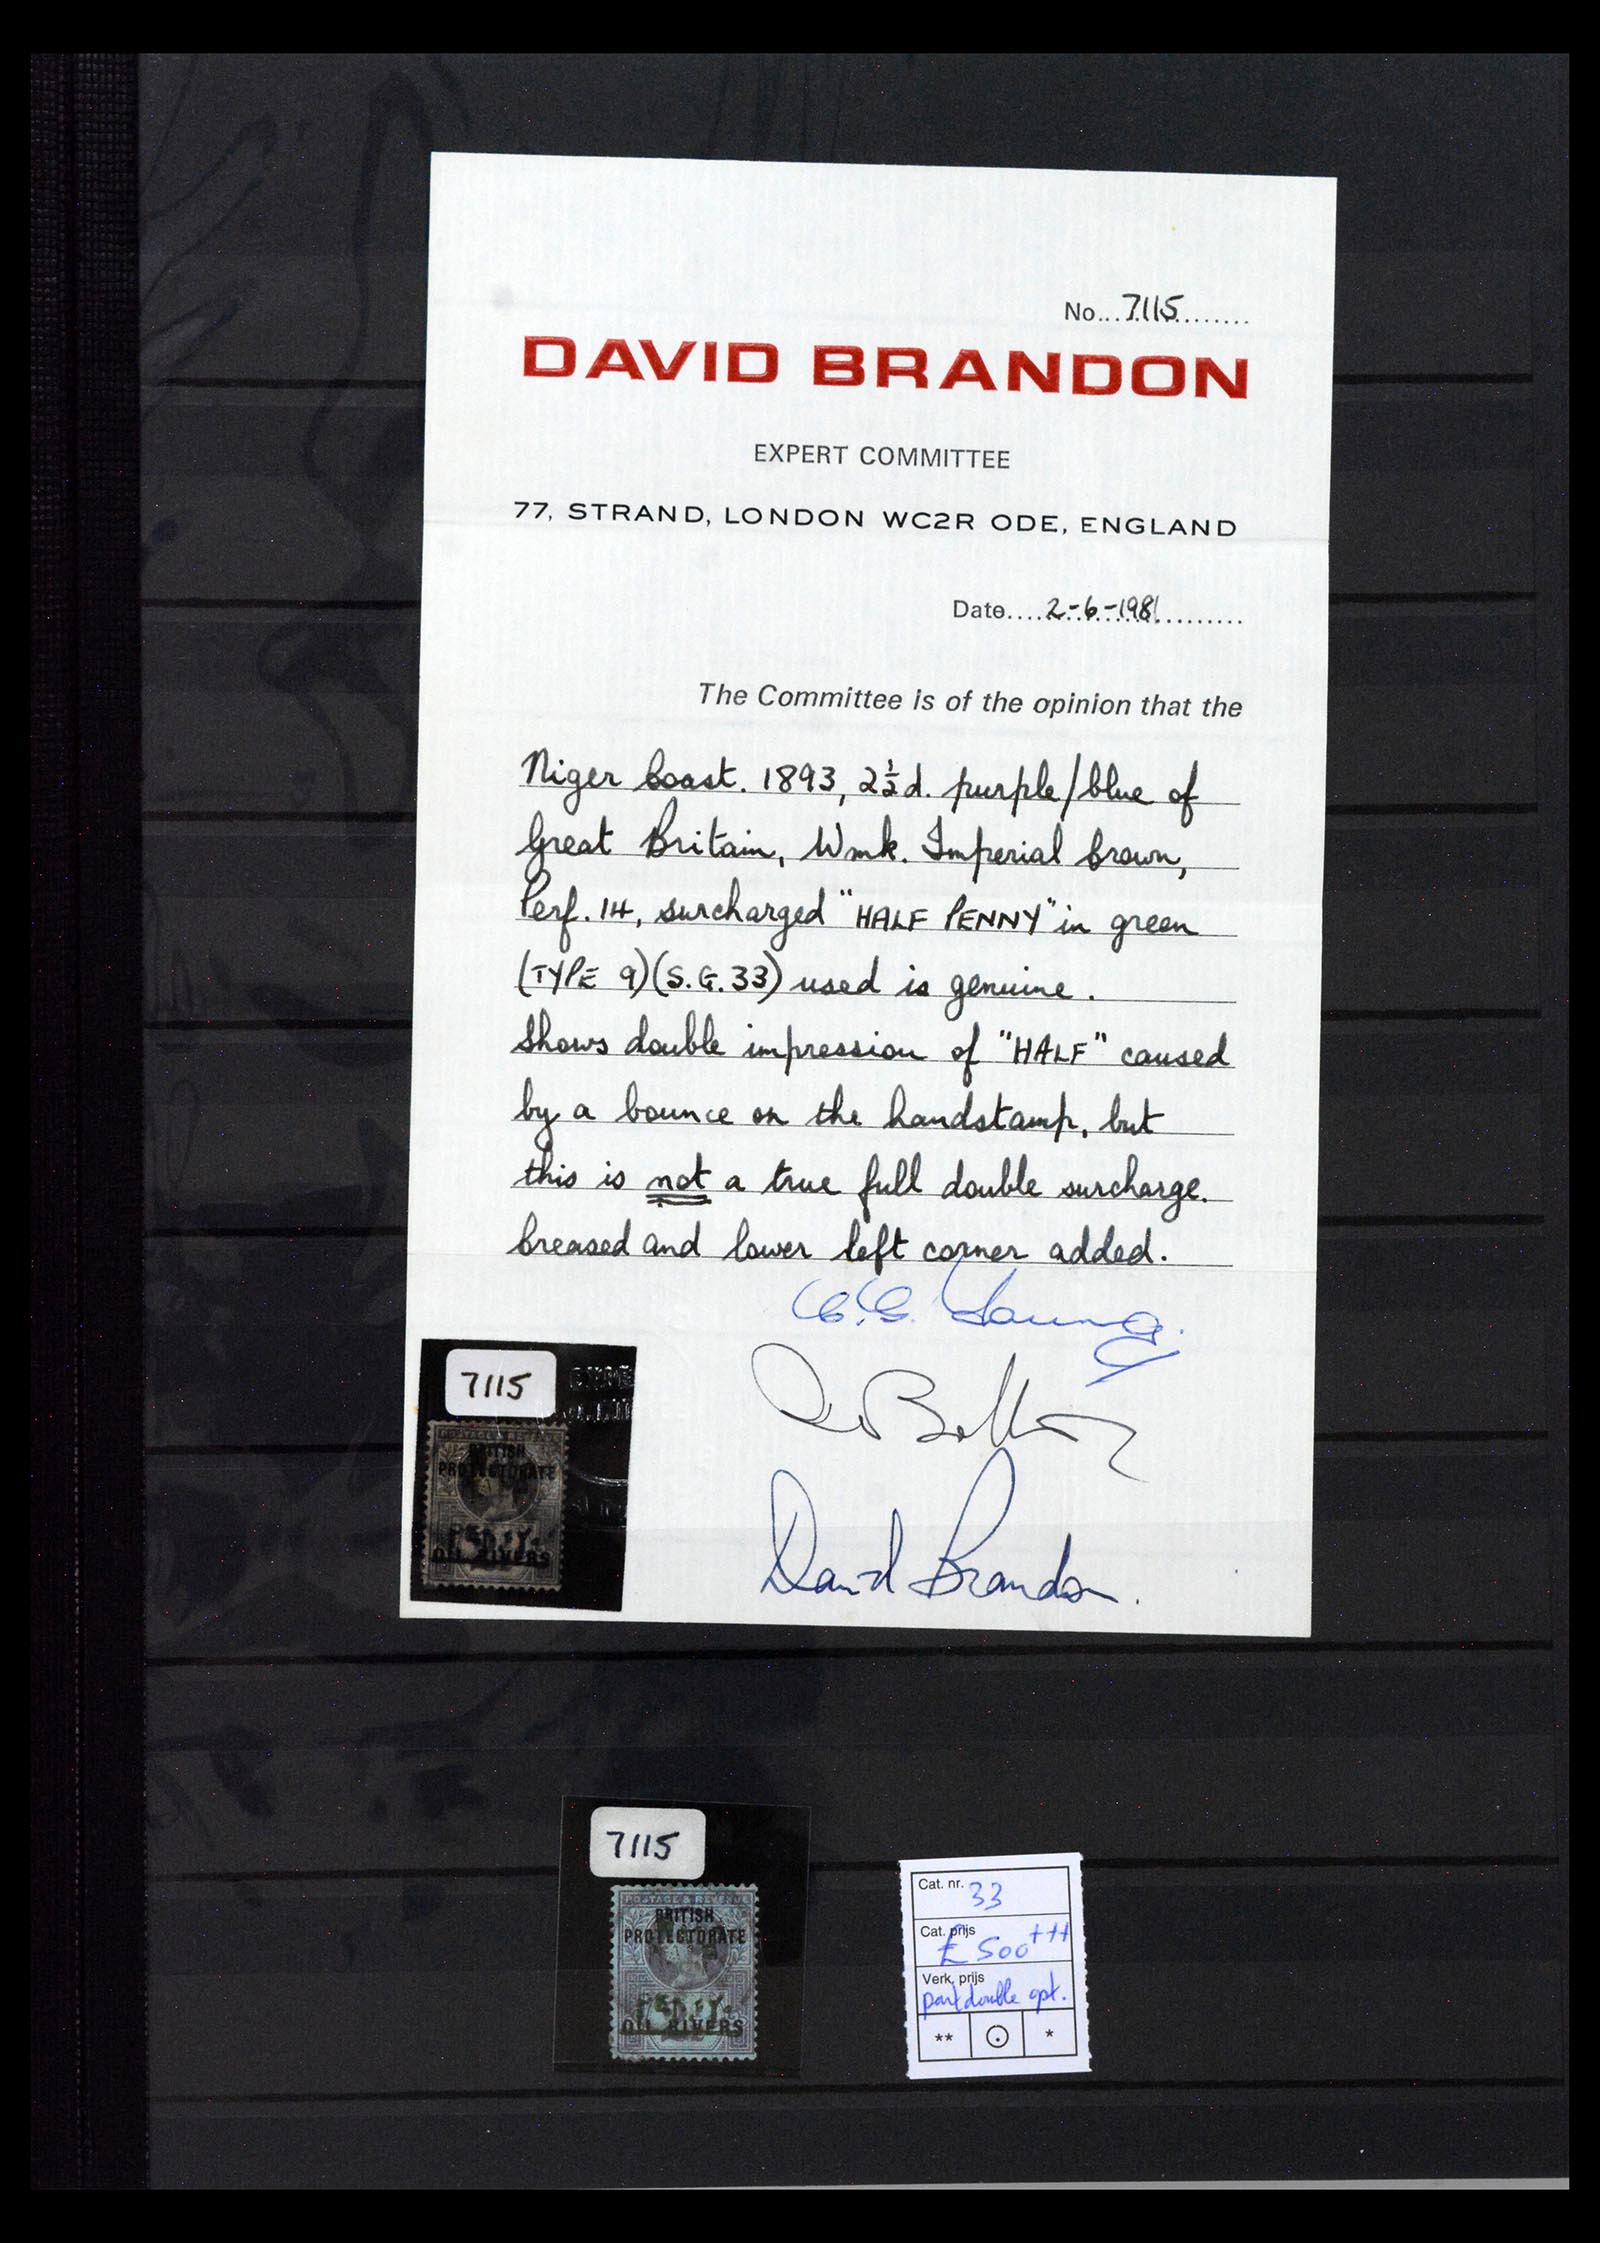 No...7115........
DAVID BRANDON
EXPERT COMMITTEE
77, STRAND, LONDON WC2R ODE, ENGLAND
Date....2-6-1981..........
The Committee is of the opinion that the
Niger Coast. 1893, 2½d. purple/blue of
Great Britain, Wmk. Imperial Crown,
Perf. 14, surcharged "HALF PENNY" in green
(TYPE 9) (S.G. 33) used is genuine.
Shows double impression of "HALF" caused
by a bounce on the handstamp, but
this is not a true full double surcharge.
Creased and lower left corner added.
David Brandon.
7115
BRITISH
PROTECTORATE
OIL RIVERS
7115
POSTAGE & REVENUE
BRITISH
PROTECTORATE
OIL RIVERS
Cat. nr. 33
Cat. prijs
£ 500+++
Verk. prijs
part double opt.
** ⊙ *